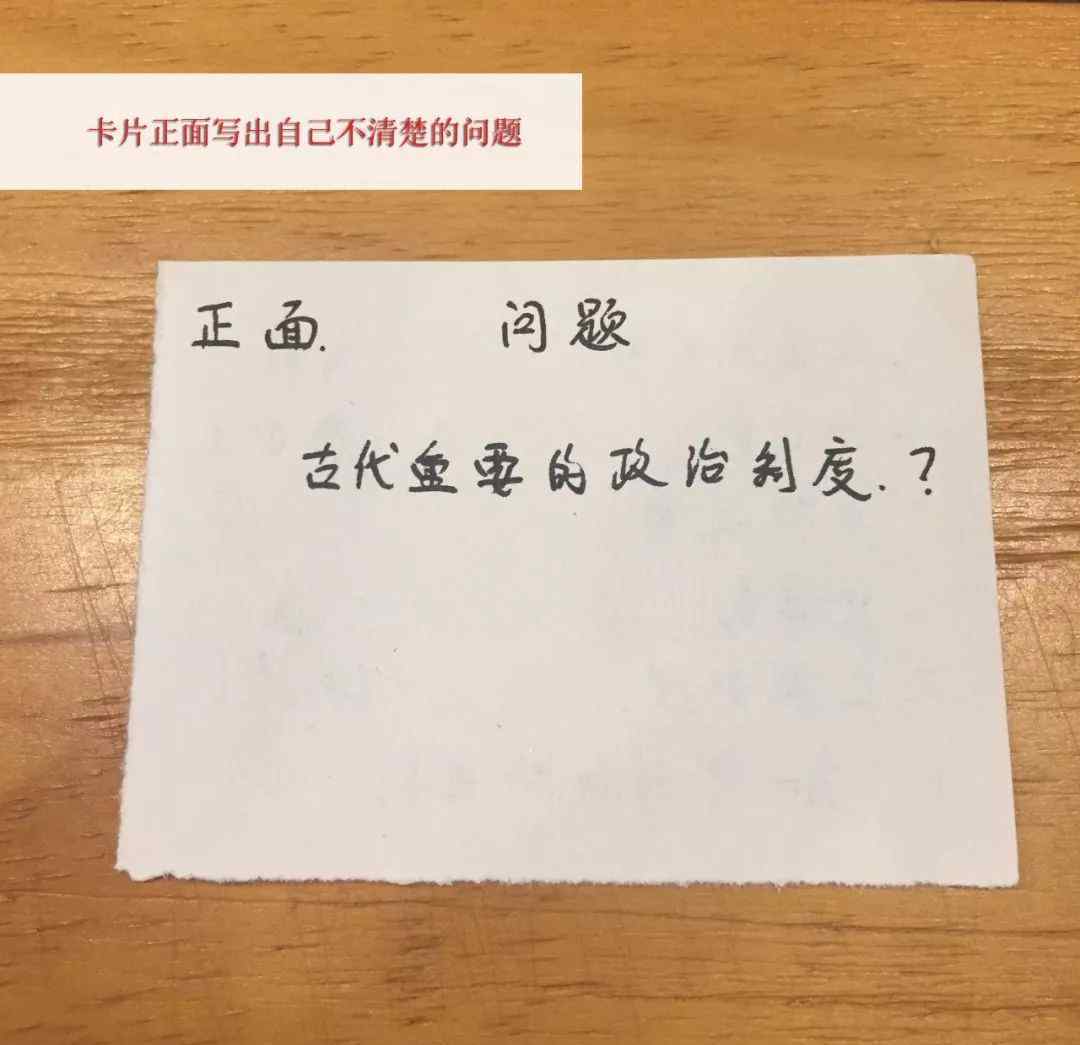 卡片正面写出自己不清楚的问题
正面. 问题
古代重要的政治制度.?